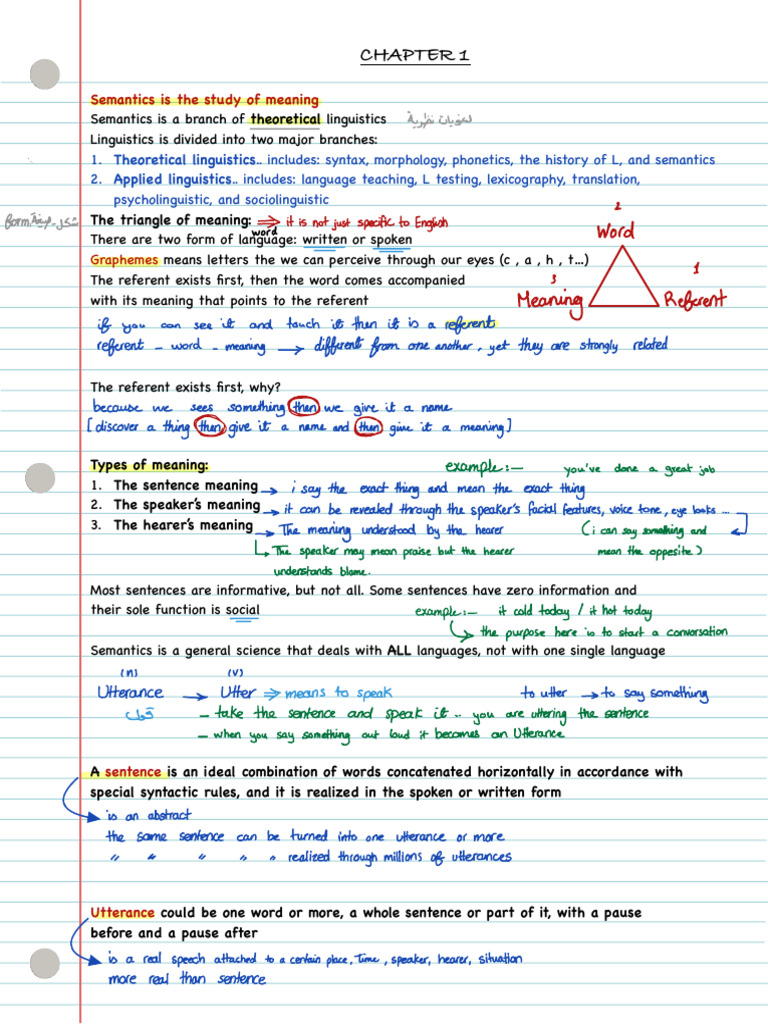 CHAPTER 1
Semantics is the study of meaning
Semantics is a branch of theoretical linguistics لغويات نظرية
Linguistics is divided into two major branches:
1. Theoretical linguistics.. includes: syntax, morphology, phonetics, the history of L, and semantics
2. Applied linguistics.. includes: language teaching, L testing, lexicography, translation,
psycholinguistic, and sociolinguistic
form شكل - صيغة
The triangle of meaning: ⇒ it is not just specific to English
word
There are two form of language: written or spoken
2
Word
1
Referent
3
Meaning
Graphemes means letters the we can perceive through our eyes (c , a , h , t...)
The referent exists first, then the word comes accompanied
with its meaning that points to the referent
if you can see it and touch it then it is a referent
referent - word - meaning → different from one another, yet they are strongly related
The referent exists first, why?
because we sees something then we give it a name
[discover a thing then give it a name and then give it a meaning]
Types of meaning: example:- you've done a great job
1. The sentence meaning → i say the exact thing and mean the exact thing
2. The speaker's meaning → it can be revealed through the speaker's facial features, voice tone, eye looks ...
(i can say something and
mean the opposite)
3. The hearer's meaning → The meaning understood by the hearer
↳ The speaker may mean praise but the hearer
understands blame.
Most sentences are informative, but not all. Some sentences have zero information and
their sole function is social example:- it cold today / it hot today
↳ the purpose here is to start a conversation
Semantics is a general science that deals with ALL languages, not with one single language
(n) (v)
Utterance → Utter ⇒ means to speak to utter → to say something
قول - take the sentence and speak it .. you are uttering the sentence
- when you say something out loud it becomes an Utterance
A sentence is an ideal combination of words concatenated horizontally in accordance with
special syntactic rules, and it is realized in the spoken or written form
is an abstract
the same sentence can be turned into one utterance or more
" " " " " realized through millions of utterances
Utterance could be one word or more, a whole sentence or part of it, with a pause
before and a pause after
is a real speech attached to a certain place, Time, speaker, hearer, situation
more real than sentence